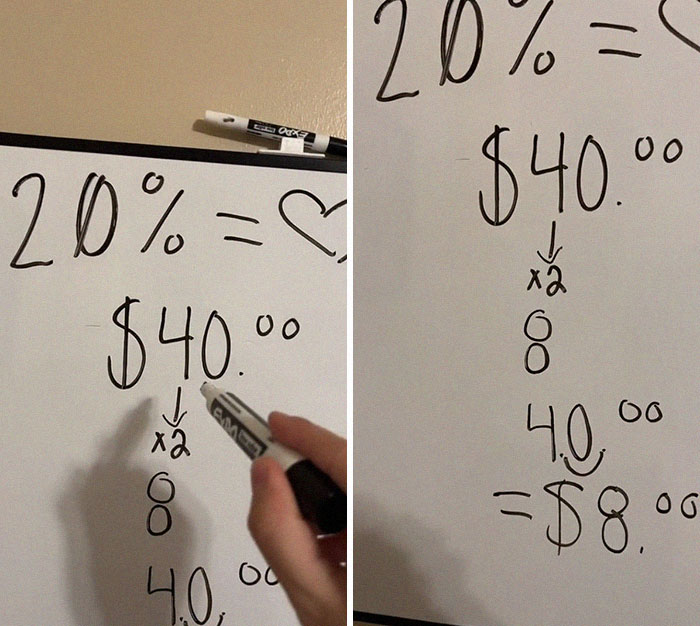 EXPO
20% = ♡
$40.00
x2
8
4.0.00
20% = 
$40.00
x2
8
4.0.00
= $8.00